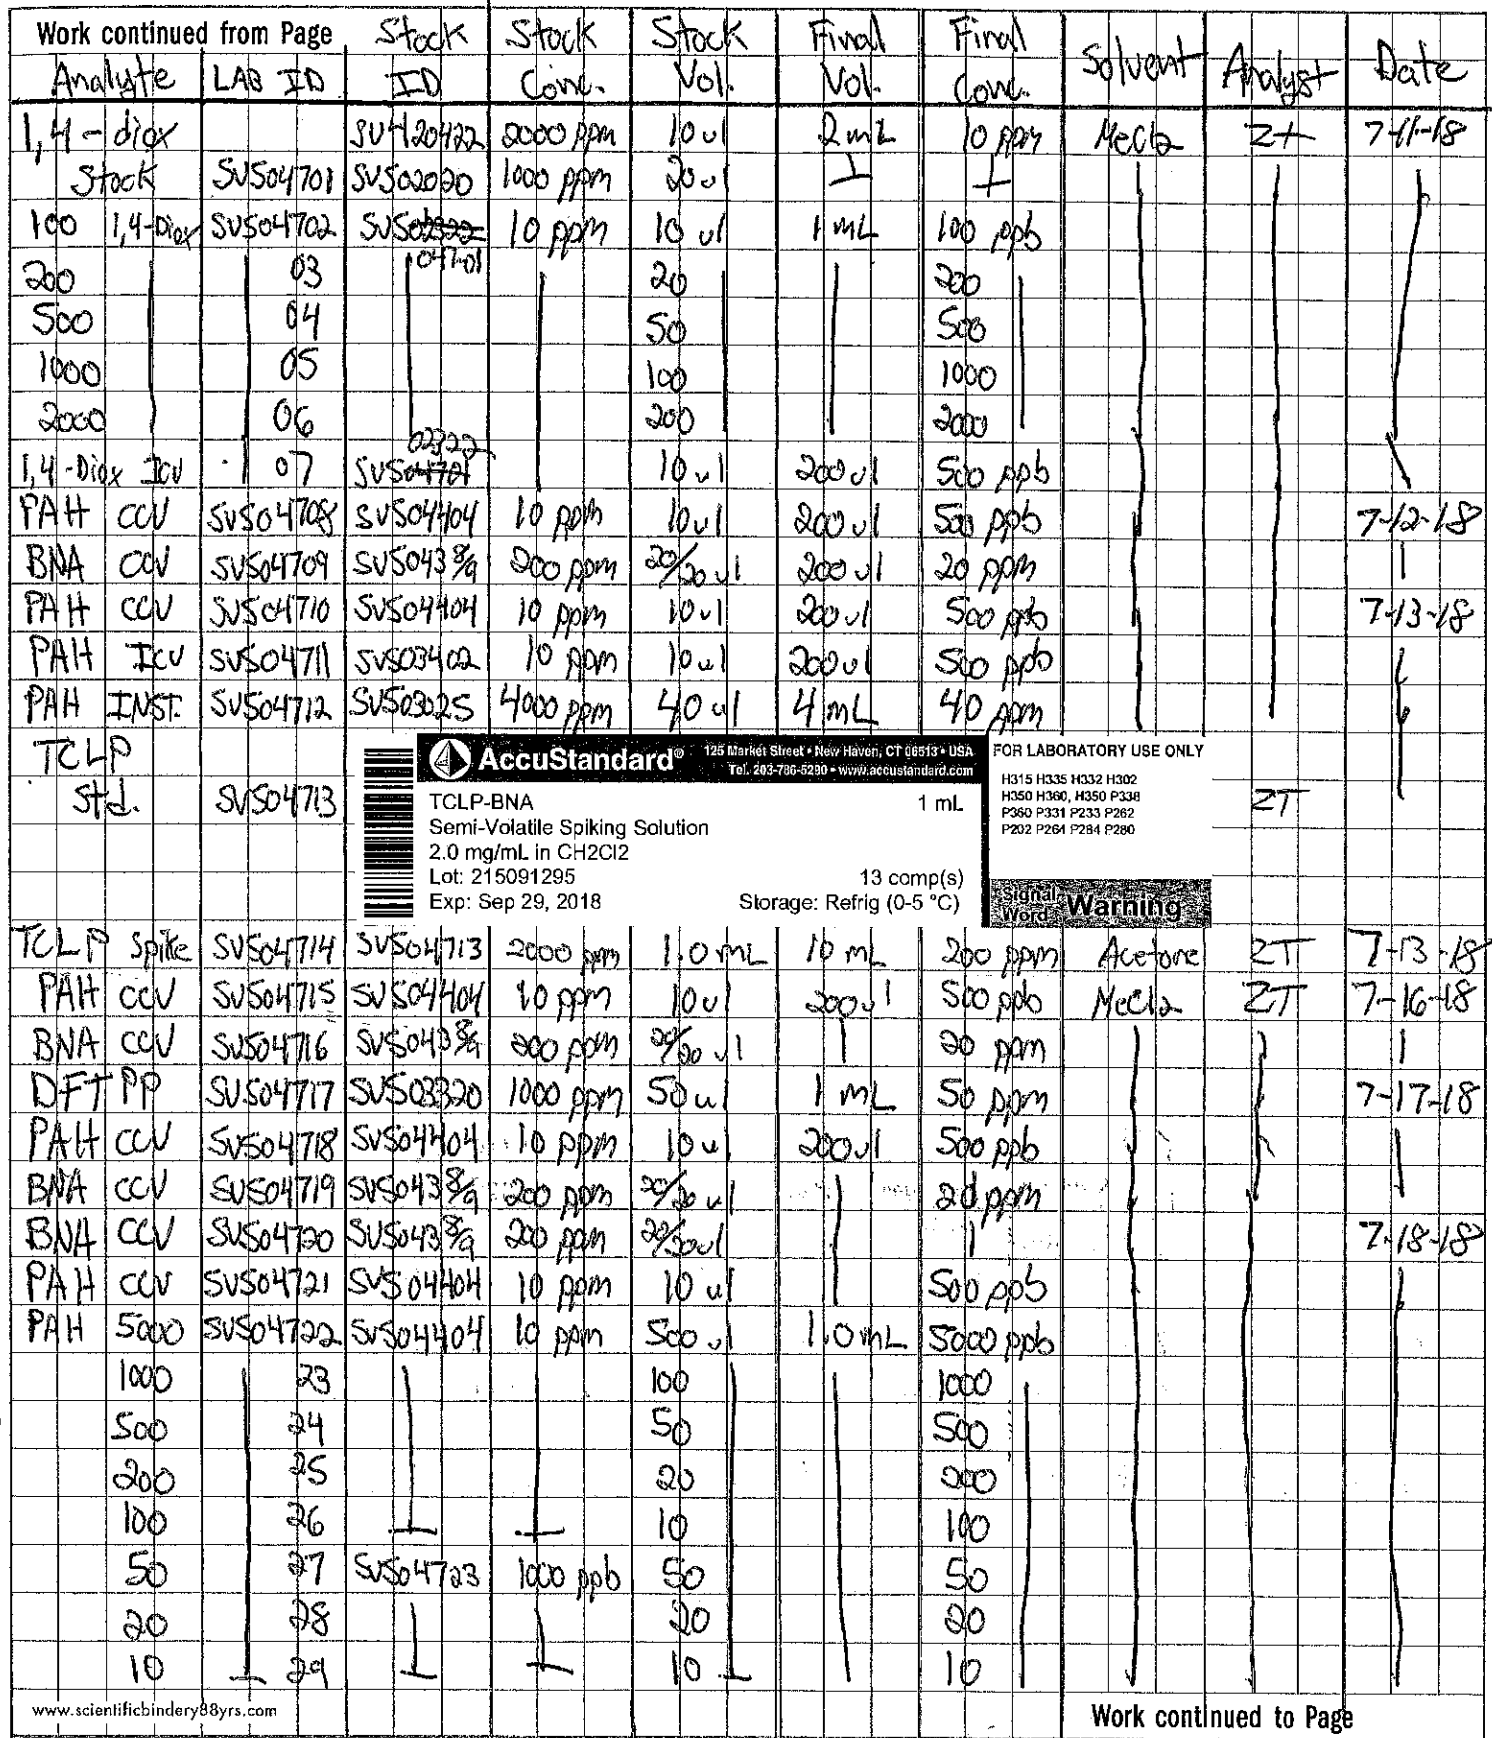 Work continued from Page Stock Stock Stock Final Final Solvent Analyst Date
Analyte LAB ID ID Conc. Vol. Vol. Conc.
1,4-diox SV420422 2000 ppm 10 ul 2 mL 10 ppm MeCl2 ZT 7-11-18
Stock SVS04701 SVS02020 1000 ppm 20 ul
100 1,4-Diox SVS04702 SVS02322 10 ppm 10 ul 1 mL 100 ppb
04701
200 03 20 200
500 04 50 500
1000 05 100 1000
2000 06 200 2000
02322
1,4-Diox ICV 07 SVS04701 10 ul 200 ul 500 ppb
PAH CCV SVS04708 SVS04404 10 ppm 10 ul 200 ul 500 ppb 7-12-18
BNA CCV SVS04709 SVS0438/9 200 ppm 20/20 ul 200 ul 20 ppm
PAH CCV SVS04710 SVS04404 10 ppm 10 ul 200 ul 500 ppb 7-13-18
PAH ICV SVS04711 SVS03402 10 ppm 10 ul 200 ul 500 ppb
PAH INST. SVS04712 SVS03025 4000 ppm 40 ul 4 mL 40 ppm
TCLP
Std. SVS04713 ZT
AccuStandard® 125 Market Street • New Haven, CT 06513 • USA
Tel. 203-786-5290 • www.accustandard.com
TCLP-BNA 1 mL
Semi-Volatile Spiking Solution
2.0 mg/mL in CH2Cl2
Lot: 215091295 13 comp(s)
Exp: Sep 29, 2018 Storage: Refrig (0-5 °C)
FOR LABORATORY USE ONLY
H315 H335 H332 H302
H350 H360, H350 P338
P360 P331 P233 P262
P202 P264 P284 P280
Signal Word Warning
TCLP Spike SVS04714 SVS04713 2000 ppm 1.0 mL 10 mL 200 ppm Acetone ZT 7-13-18
PAH CCV SVS04715 SVS04404 10 ppm 10 ul 200 ul 500 ppb MeCl2 ZT 7-16-18
BNA CCV SVS04716 SVS0438/9 200 ppm 20/20 ul 20 ppm
DFTPP SVS04717 SVS03320 1000 ppm 50 ul 1 mL 50 ppm 7-17-18
PAH CCV SVS04718 SVS04404 10 ppm 10 ul 200 ul 500 ppb
BNA CCV SVS04719 SVS0438/9 200 ppm 20/20 ul 20 ppm
BNA CCV SVS04720 SVS0438/9 200 ppm 20/20 ul 7-18-18
PAH CCV SVS04721 SVS04404 10 ppm 10 ul 500 ppb
PAH 5000 SVS04722 SVS04404 10 ppm 500 ul 1.0 mL 5000 ppb
1000 23 100 1000
500 24 50 500
200 25 20 200
100 26 10 100
50 27 SVS04723 1000 ppb 50 50
20 28 20 20
10 29 10 10
www.scientificbindery88yrs.com Work continued to Page